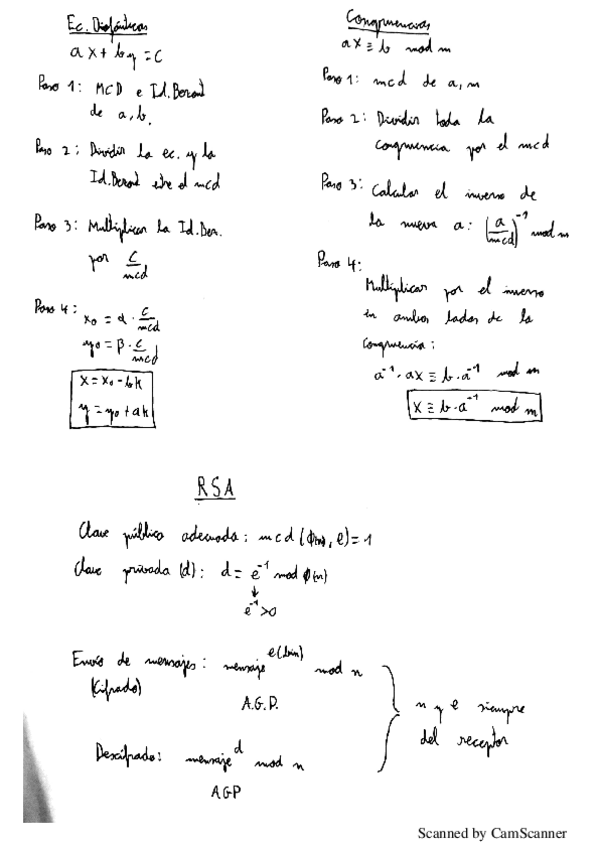 Ec. Diofánticas
ax + by = c
Paso 1: MCD e Id. Bezout
de a, b.
Paso 2: Dividir la ec. y la
Id. Bezout entre el mcd
Paso 3: Multiplicar la Id. Bez.
por c/mcd
Paso 4: x₀ = α · c/mcd
y₀ = β · c/mcd
x = x₀ - bk
y = y₀ + ak
Congruencias
ax ≡ b mod m
Paso 1: mcd de a, m
Paso 2: Dividir toda la
congruencia por el mcd
Paso 3: Calcular el inverso de
la nueva a: (a/mcd)⁻¹ mod m
Paso 4:
Multiplicar por el inverso
en ambos lados de la
congruencia:
a⁻¹ · ax ≡ b · a⁻¹ mod m
x ≡ b · a⁻¹ mod m
RSA
Clave pública adecuada: mcd(ϕ(n), e) = 1
Clave privada (d): d = e⁻¹ mod ϕ(n)
↓
e⁻¹ > 0
Envío de mensajes: mensaje^e(bin) mod n
(Cifrado)
A.G.P.
Descifrado: mensaje^d mod n
AGP
n y e siempre
del receptor
Scanned by CamScanner